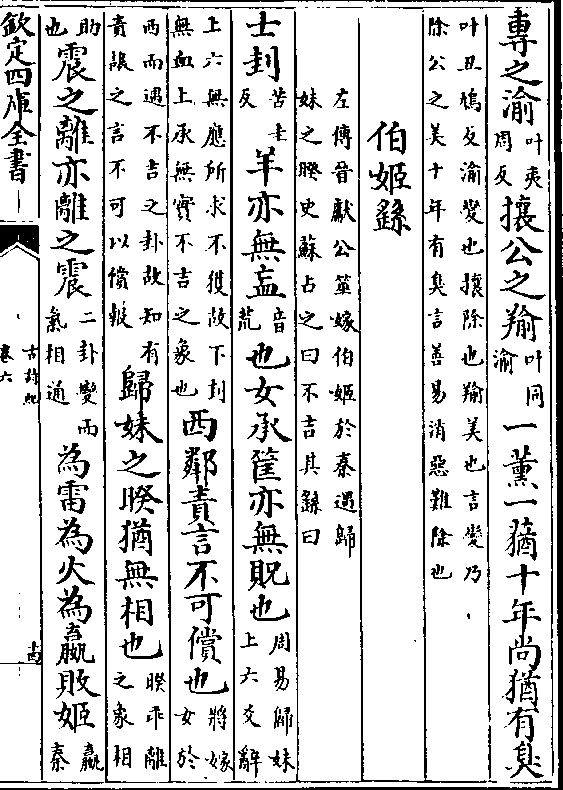 專之渝叶夷周反攘公之羭叶同渝一薰一蕕十年尚猶有臭
叶丑鳩反渝變也攘除也羭美也言變乃
除公之美十年有臭言善易消惡難除也
伯姬繇
左傳晉獻公筮嫁伯姬於秦遇歸
妹之睽史蘇占之曰不吉其繇曰
士刲苦圭反羊亦無衁音荒也女承筐亦無貺也周易歸妹上六爻辭
上六無應所求不獲故下刲無血上承無實不吉之象也西鄰責言不可償也將嫁女於
西而遇不吉之卦故知有責讓之言不可以償報歸妹之睽猶無相也睽乖離之象相
助也震之離亦離之震二卦變而氣相通為雷為火為嬴敗姬嬴秦
欽定四庫全書
古詩紀
卷六
十四